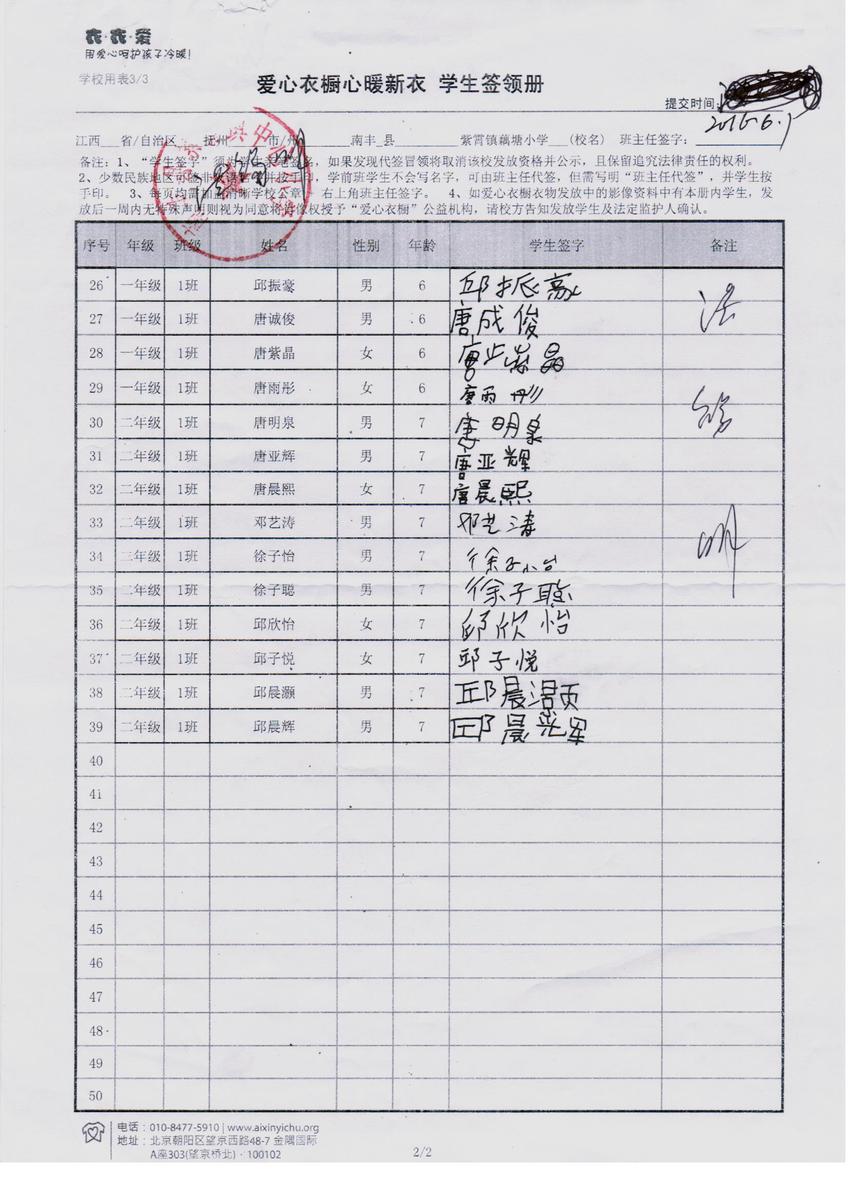 衣·衣·爱
用爱心呵护孩子冷暖!
学校用表3/3
爱心衣橱心暖新衣 学生签领册
提交时间:
2016.6.1
江西 省/自治区 抚州 市/州 南丰 县 紫霄镇藕塘小学 (校名) 班主任签字:
备注:1、“学生签字”须为学生亲笔签名,如果发现代签冒领将取消该校发放资格并公示,且保留追究法律责任的权利。
2、少数民族地区 学前班学生不会写名字,可由班主任代签,但需写明“班主任代签”,并学生按
手印。 3、每页均需加盖清晰学校公章, 右上角班主任签字。 4、如爱心衣橱衣物发放中的影像资料中有本册内学生,发
放后一周内无特殊声明则视为同意将肖像权授予“爱心衣橱”公益机构,请校方告知发放学生及法定监护人确认。
序号 年级 班级 姓名 性别 年龄 学生签字 备注
26 一年级 1班 邱振豪 男 6 邱振豪
27 一年级 1班 唐诚俊 男 6 唐成俊
28 一年级 1班 唐紫晶 女 6 唐紫晶
29 一年级 1班 唐雨彤 女 6 唐雨彤
30 二年级 1班 唐明泉 男 7 唐明泉
31 二年级 1班 唐亚辉 男 7 唐亚辉
32 二年级 1班 唐晨熙 女 7 唐晨熙
33 二年级 1班 邓艺涛 男 7 邓艺涛
34 二年级 1班 徐子怡 男 7 徐子怡
35 二年级 1班 徐子聪 男 7 徐子聪
36 二年级 1班 邱欣怡 女 7 邱欣怡
37 二年级 1班 邱子悦 女 7 邱子悦
38 二年级 1班 邱晨灏 男 7 邱晨灏
39 二年级 1班 邱晨辉 男 7 邱晨辉
40
41
42
43
44
45
46
47
48
49
50
电话:010-8477-5910 | www.aixinyichu.org
地址:北京朝阳区望京西路48-7 金隅国际
A座303(望京桥北)·100102
2/2